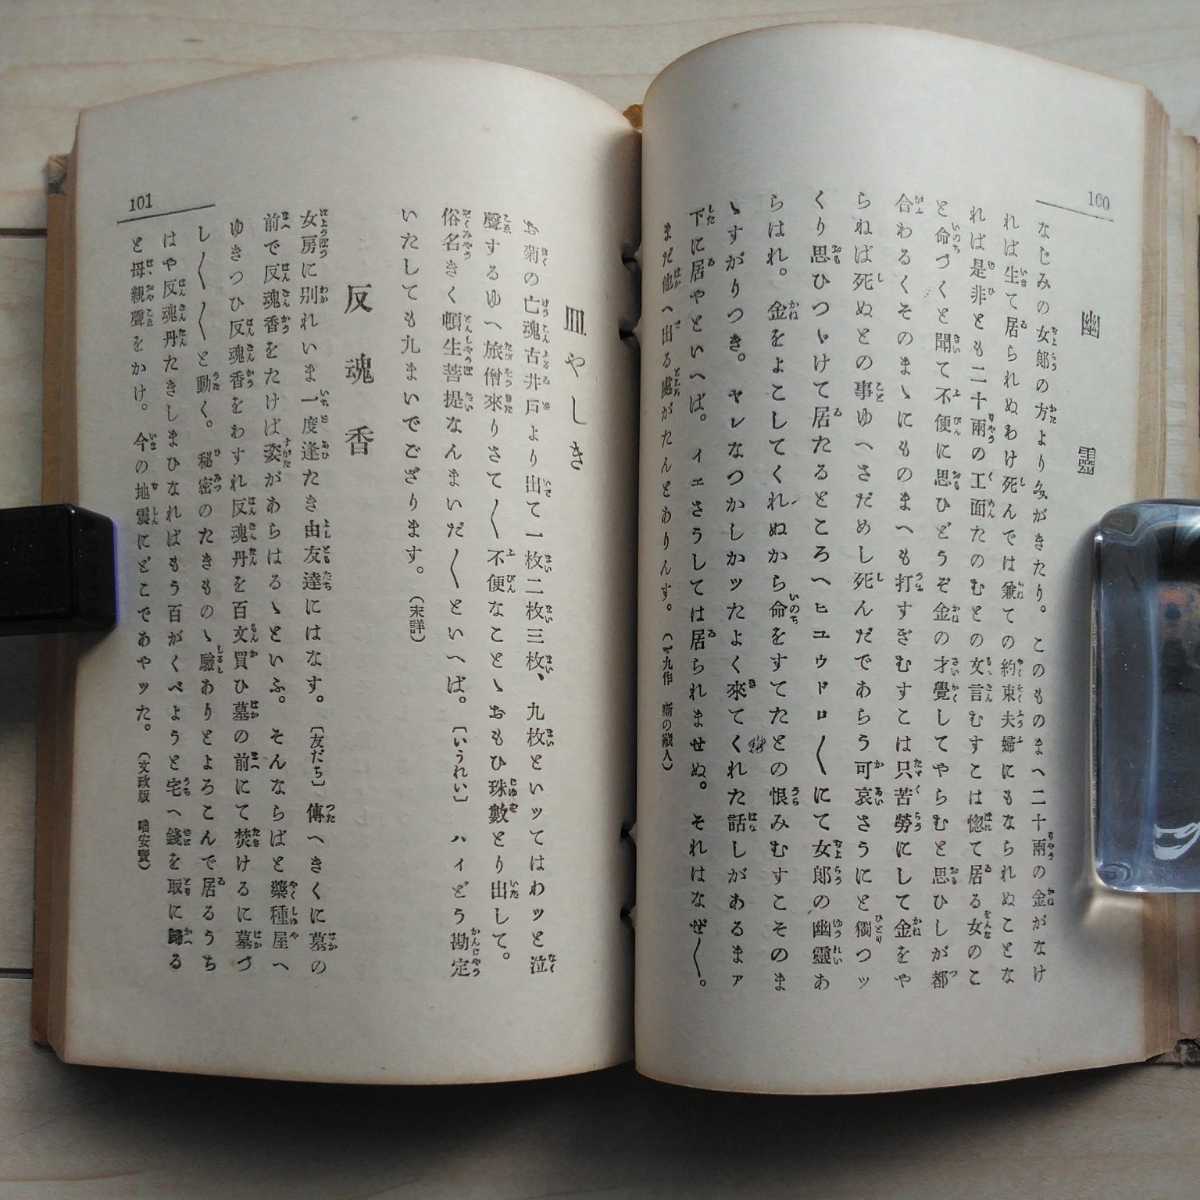 100
幽靈
なじみの女郎の方よりふみがきたり。このものまへ二十兩の金がなけ
れば生て居られぬわけ死んでは兼ての約束夫婦にもなられぬことな
れば是非とも二十兩の工面たのむとの文言むすこは惚て居る女のこ
と命づくと聞て不便に思ひどうぞ金の才覺してやらむと思ひしが都
合わるくそのまゝにものまへも打すぎむすこは只苦勞にして金をや
らねば死ぬとの事ゆへさだめし死んだであらう可哀さうにと獨つッ
くり思ひつゞけて居たるところへヒユウドロ〳〵にて女郎の幽靈あ
らはれ。金をよこしてくれぬから命をすてたとの恨みむすこそのま
ゝすがりつき。ヤレなつかしかッたよく來てくれた話しがあるまァ
下に居やといへば。イエさうしては居られませぬ。それはなぜ〳〵。
まだ他へ出る處がたんとありんす。(一九作 噺の藏入)
皿やしき
お菊の亡魂古井戸より出て一枚二枚三枚、九枚といッてはわッと泣
聲するゆへ旅僧來りさて〳〵不便なことゝおもひ珠數とり出して。
俗名きく頓生菩提なんまいだ〳〵といへば。〔いうれい〕ハイどう勘定
いたしても九まいでござります。(未詳)
反魂香
女房に別れいま一度逢たき由友達にはなす。〔友だち〕傳へきくに墓の
前で反魂香をたけば姿があらはるゝといふ。そんならばと藥種屋へ
ゆきつひ反魂香をわすれ反魂丹を百文買ひ墓の前にて焚けるに墓づ
し〳〵〳〵と動く。秘密のたきものゝ驗ありとよろこんで居るうち
はや反魂丹たきしまひなればもう百がくべようと宅へ錢を取に歸る
と母親聲をかけ。今の地震にどこであやッた。(文政版 噺安賣)
101